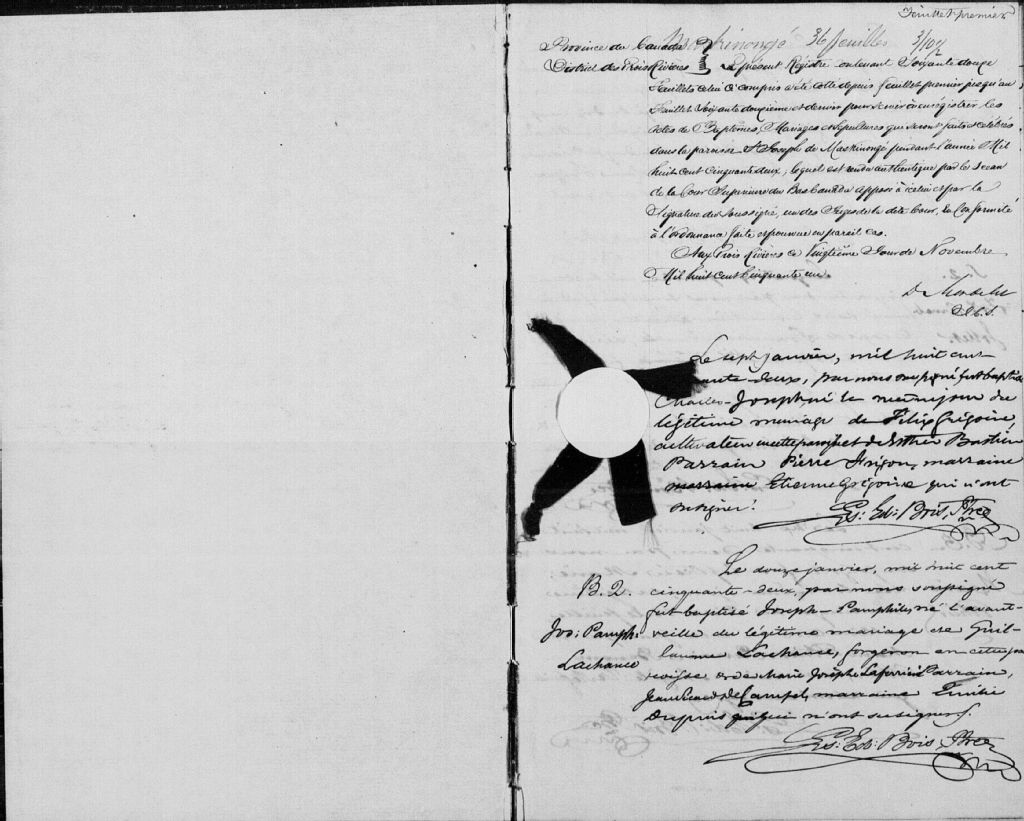 Feuillet premier
Maskinongé 36 feuilles 3/102
Province du Canada
District des Trois Rivières } Le présent Registre contenant Soixante douze
feuillets celui ci compris a été cotté depuis feuillet premier jusqu'au
feuillet soixante douzième et dernier pour servir à enrégistrer les
Actes de Baptêmes, Mariages et sépultures qui seront faits et célébrés
dans la paroisse St Joseph de Maskinongé pendant l'année Mil
huit cent cinquante deux, lequel est rendu authentique par le Sceau
de la Cour Supérieure du Bas Canada apposé à icelui et par la
Signature du Soussigné, un des Juges de la dite Cour, En Conformité
à l'ordonnance faite et pourvue en pareil cas.
Aux Trois Rivières ce Vingtième Jour de Novembre
Mil huit cent Cinquante un.
D Mondelet
J.C.S.
Le sept janvier, mil huit cent
ante-deux, par nous soussigné fut baptisé
Charles-Joseph né le même jour du
légitime mariage de Filip Grégoire,
cultivateur en cette paroisse et de Esther Bastien
Parrain Pierre Frigon, marraine
marraine Etienne Grégoire qui n'ont
su signer.
Gs: Ed: Bois, Ptre
Le douze janvier, mil huit cent
B. 2. cinquante-deux, par nous soussigné
fut baptisé Joseph-Pamphile, né l'avant-
Jos: Pamph: veille du légitime mariage de Guil-
Lachance laume Lachance, forgeron en cette pa
roisse et de Marie Josephe Laferrière Parrain,
Jean marraine Emilie
Dupuis qui n'ont su signer.
Gs: Ed: Bois, Ptre